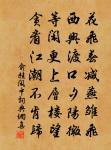 花飛春減燕雛飛
西興渡口夕陽微
等閑更上層樓望
貪看江潮不肯歸
俞桂閑中詞與偶集